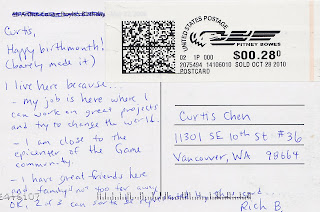 Curtis,
Happy birthmonth!
(barely made it)
I live here because...
- my job is here where I
can work on great projects
and try to change the world.
- I am close to the
epicenter of the Game
community.
- I have great friends here
and family not too far away
OK, 2 of 3
UNITED STATES POSTAGE
PITNEY BOWES
$00.28⁰
02 1P 000
SOLD OCT 28 2010
POSTCARD
Curtis Chen
11301 SE 10th St #36
Vancouver, WA 98664
Rich B.